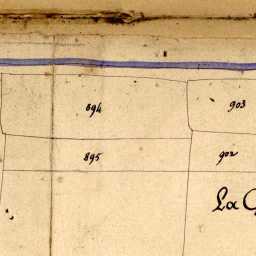 894
903
895
902
La